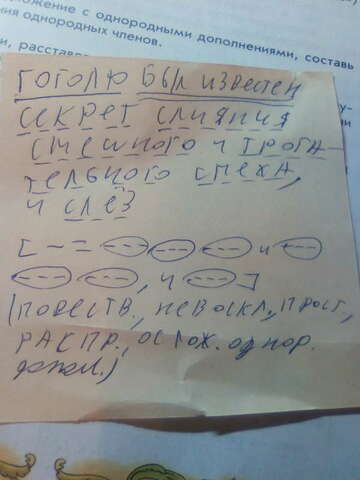 ложение с однородными дополнениями, составь
ния однородных членов.
и, расставь
ГОГОЛЮ БЫЛ ИЗВЕСТЕН
СЕКРЕТ СЛИЯНИЯ
СМЕШНОГО И ТРОГА-
ТЕЛЬНОГО СМЕХА,
И СЛЁЗ
[ – = и
, и ]
(ПОВЕСТВ., НЕВОСКЛ., ПРОСТ.,
РАСПР., ОСЛОЖ. ОДНОР.
допол.)